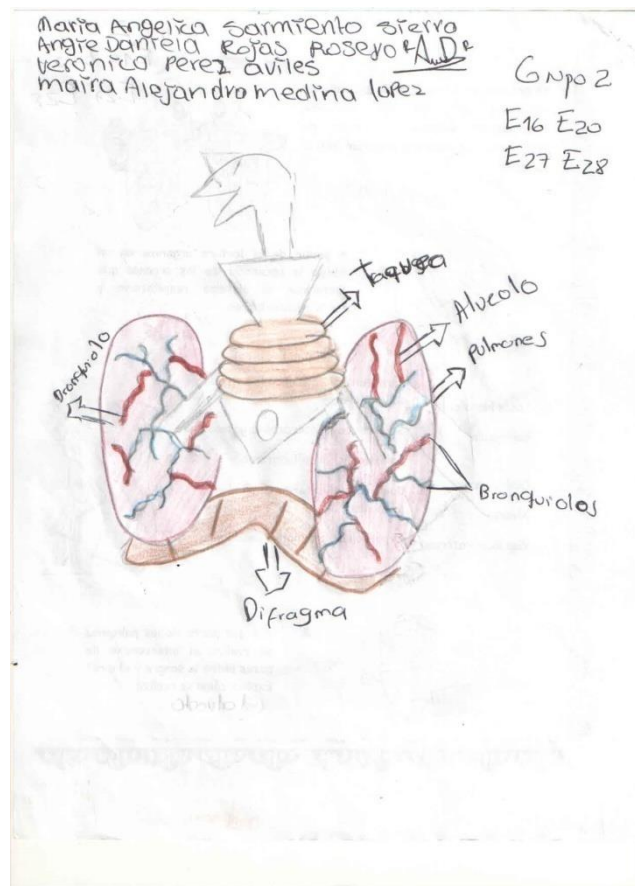 Maria Angelica Sarmiento Sierra
Angie Daniela Rojas Roseyo A.D
Veronica Perez aviles
maira Alejandra medina lopez
Grupo 2
E16 E20
E27 E28
Alveolo
Pulmones
Bronquiolo
Bronquiolos
Difragma